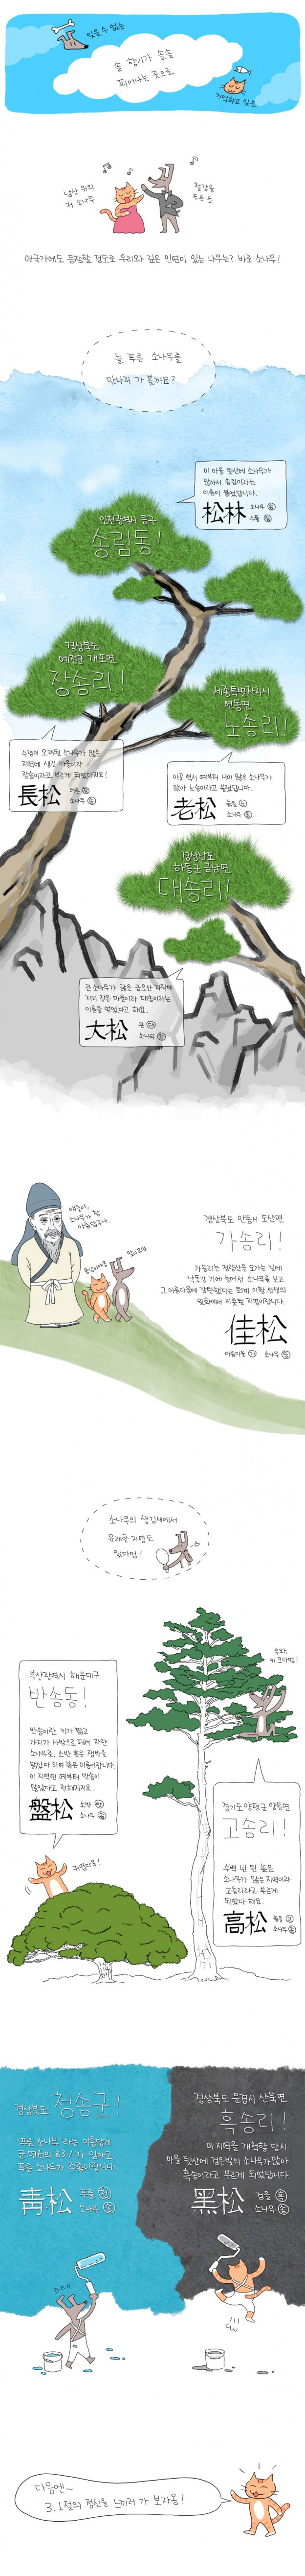 잊을 수 없는
솔 향기가 솔솔
피어나는 곳으로
기억하고 싶은
남산 위의
저 소나무
철갑을
두른 듯
애국가에도 등장할 정도로 우리와 깊은 인연이 있는 나무는? 바로 소나무!
늘 푸른 소나무를
만나러 가 볼까요?
이 마을 뒷산에 소나무가
많아서 송림이라는
이름이 붙었답니다.
松林 소나무 송
수풀 림
인천광역시 동구
송림동!
경상북도
예천군 개포면
장송리!
세종특별자치시
연동면
노송리!
수령이 오래된 소나무가 많은
지역에 생긴 마을이라
장송이라고 부르게 되었다지요!
長松 어른 장
소나무 송
이곳 역시 예부터 나이 많은 소나무가
많아 노송이라고 불렸답니다.
老松 늙을 노
소나무 송
경상남도
하동군 금남면
대송리!
큰 소나무가 많은 금오산 자락에
자리 잡은 마을이라 대송이라는
이름을 얻었다고 해요.
大松 큰 대
소나무 송
얘들아,
소나무가 참
아름답구나.
맞아요멍
경상북도 안동시 도산면
가송리!
가송리는 청량산을 오가는 길에
낙동강 가에 늘어선 소나무를 보고
그 아름다움에 감탄했다는 퇴계 이황 선생의
일화에서 비롯된 지명이랍니다.
佳松
아름다울 가 소나무 송
소나무의 생김새에서
유래한 지명도
있다멍!
우와,
키 크다멍!
부산광역시 해운대구
반송동!
반송이란 키가 작고
가지가 사방으로 퍼져 자란
소나무로, 소반 혹은 쟁반을
닮았다 하여 붙은 이름이랍니다.
이 지역엔 예부터 반송이
많았다고 전해지지요.
盤松 소반 반
소나무 송
귀엽다옹!
경기도 양평군 양동면
고송리!
수백 년 된 높은
소나무가 많은 지역이라
고송리라고 부르게
되었다 해요.
高松 높을 고
소나무 송
경상북도 청송군!
'푸른 소나무'라는 이름답게
군 면적의 83%가 임야고,
푸른 소나무가 주종이랍니다.
靑松 푸를 청
소나무 송
경상북도 문경시 산북면
흑송리!
이 지역을 개척할 당시
마을 뒷산에 검은빛의 소나무가 많아
흑송이라고 부르게 되었답니다.
黑松 검을 흑
소나무 송
다음엔~
3.1절의 정신을 느끼러 가 보자옹!